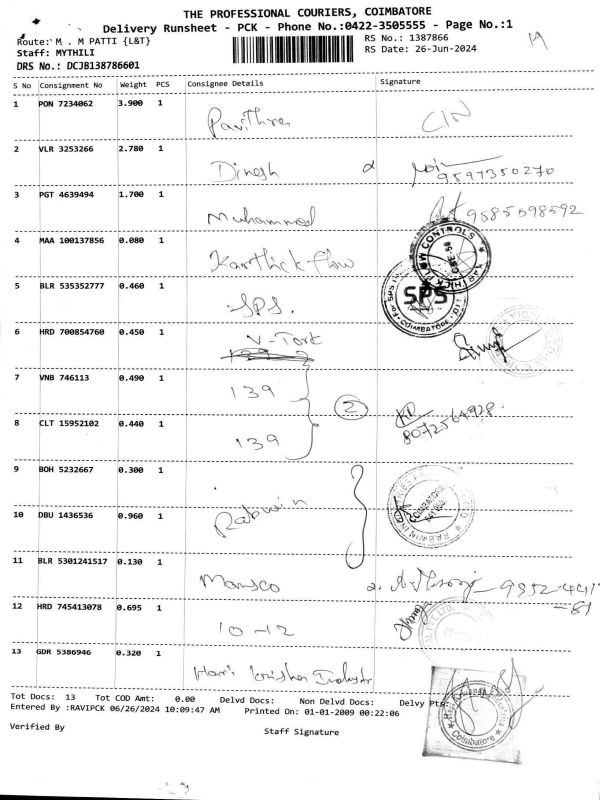 THE PROFESSIONAL COURIERS, COIMBATORE
Delivery Runsheet - PCK - Phone No.:0422-3505555 - Page No.:1
Route: M . M PATTI {L&T} RS No.: 1387866
Staff: MYTHILI RS Date: 26-Jun-2024
DRS No.: DCJB138786601
S No Consignment No Weight PCS Consignee Details Signature
1 PON 7234062 3.900 1
Pavithra
2 VLR 3253266 2.780 1
Dinesh 9597350270
3 PGT 4639494 1.700 1
Muhammed 9585598592
4 MAA 100137856 0.080 1
Karthick flow
FLOW CONTROLS
5 BLR 535352777 0.460 1
SPS.
SPS
COIMBATORE
6 HRD 700854760 0.450 1
V-Tork
7 VNB 746113 0.490 1
139
2
8 CLT 15952102 0.440 1
8072564928
139
9 BOH 5232667 0.300 1
10 DBU 1436536 0.960 1
COIMBATORE
11 BLR 5301241517 0.130 1
Mansco
12 HRD 745413078 0.695 1
10-12
13 GDR 5386946 0.320 1
Hari Krishna Industr
Tot Docs: 13 Tot COD Amt: 0.00 Delvd Docs: Non Delvd Docs: Delvy Pts:
Entered By :RAVIPCK 06/26/2024 10:09:47 AM Printed On: 01-01-2009 00:22:06
Coimbatore
Verified By Staff Signature